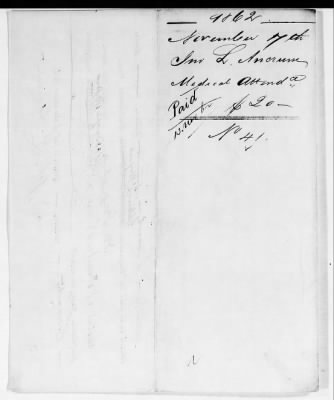 1862.
November 17th
Jno L. Ancrum
Medical Attendce
Paid
$20-
No 41.